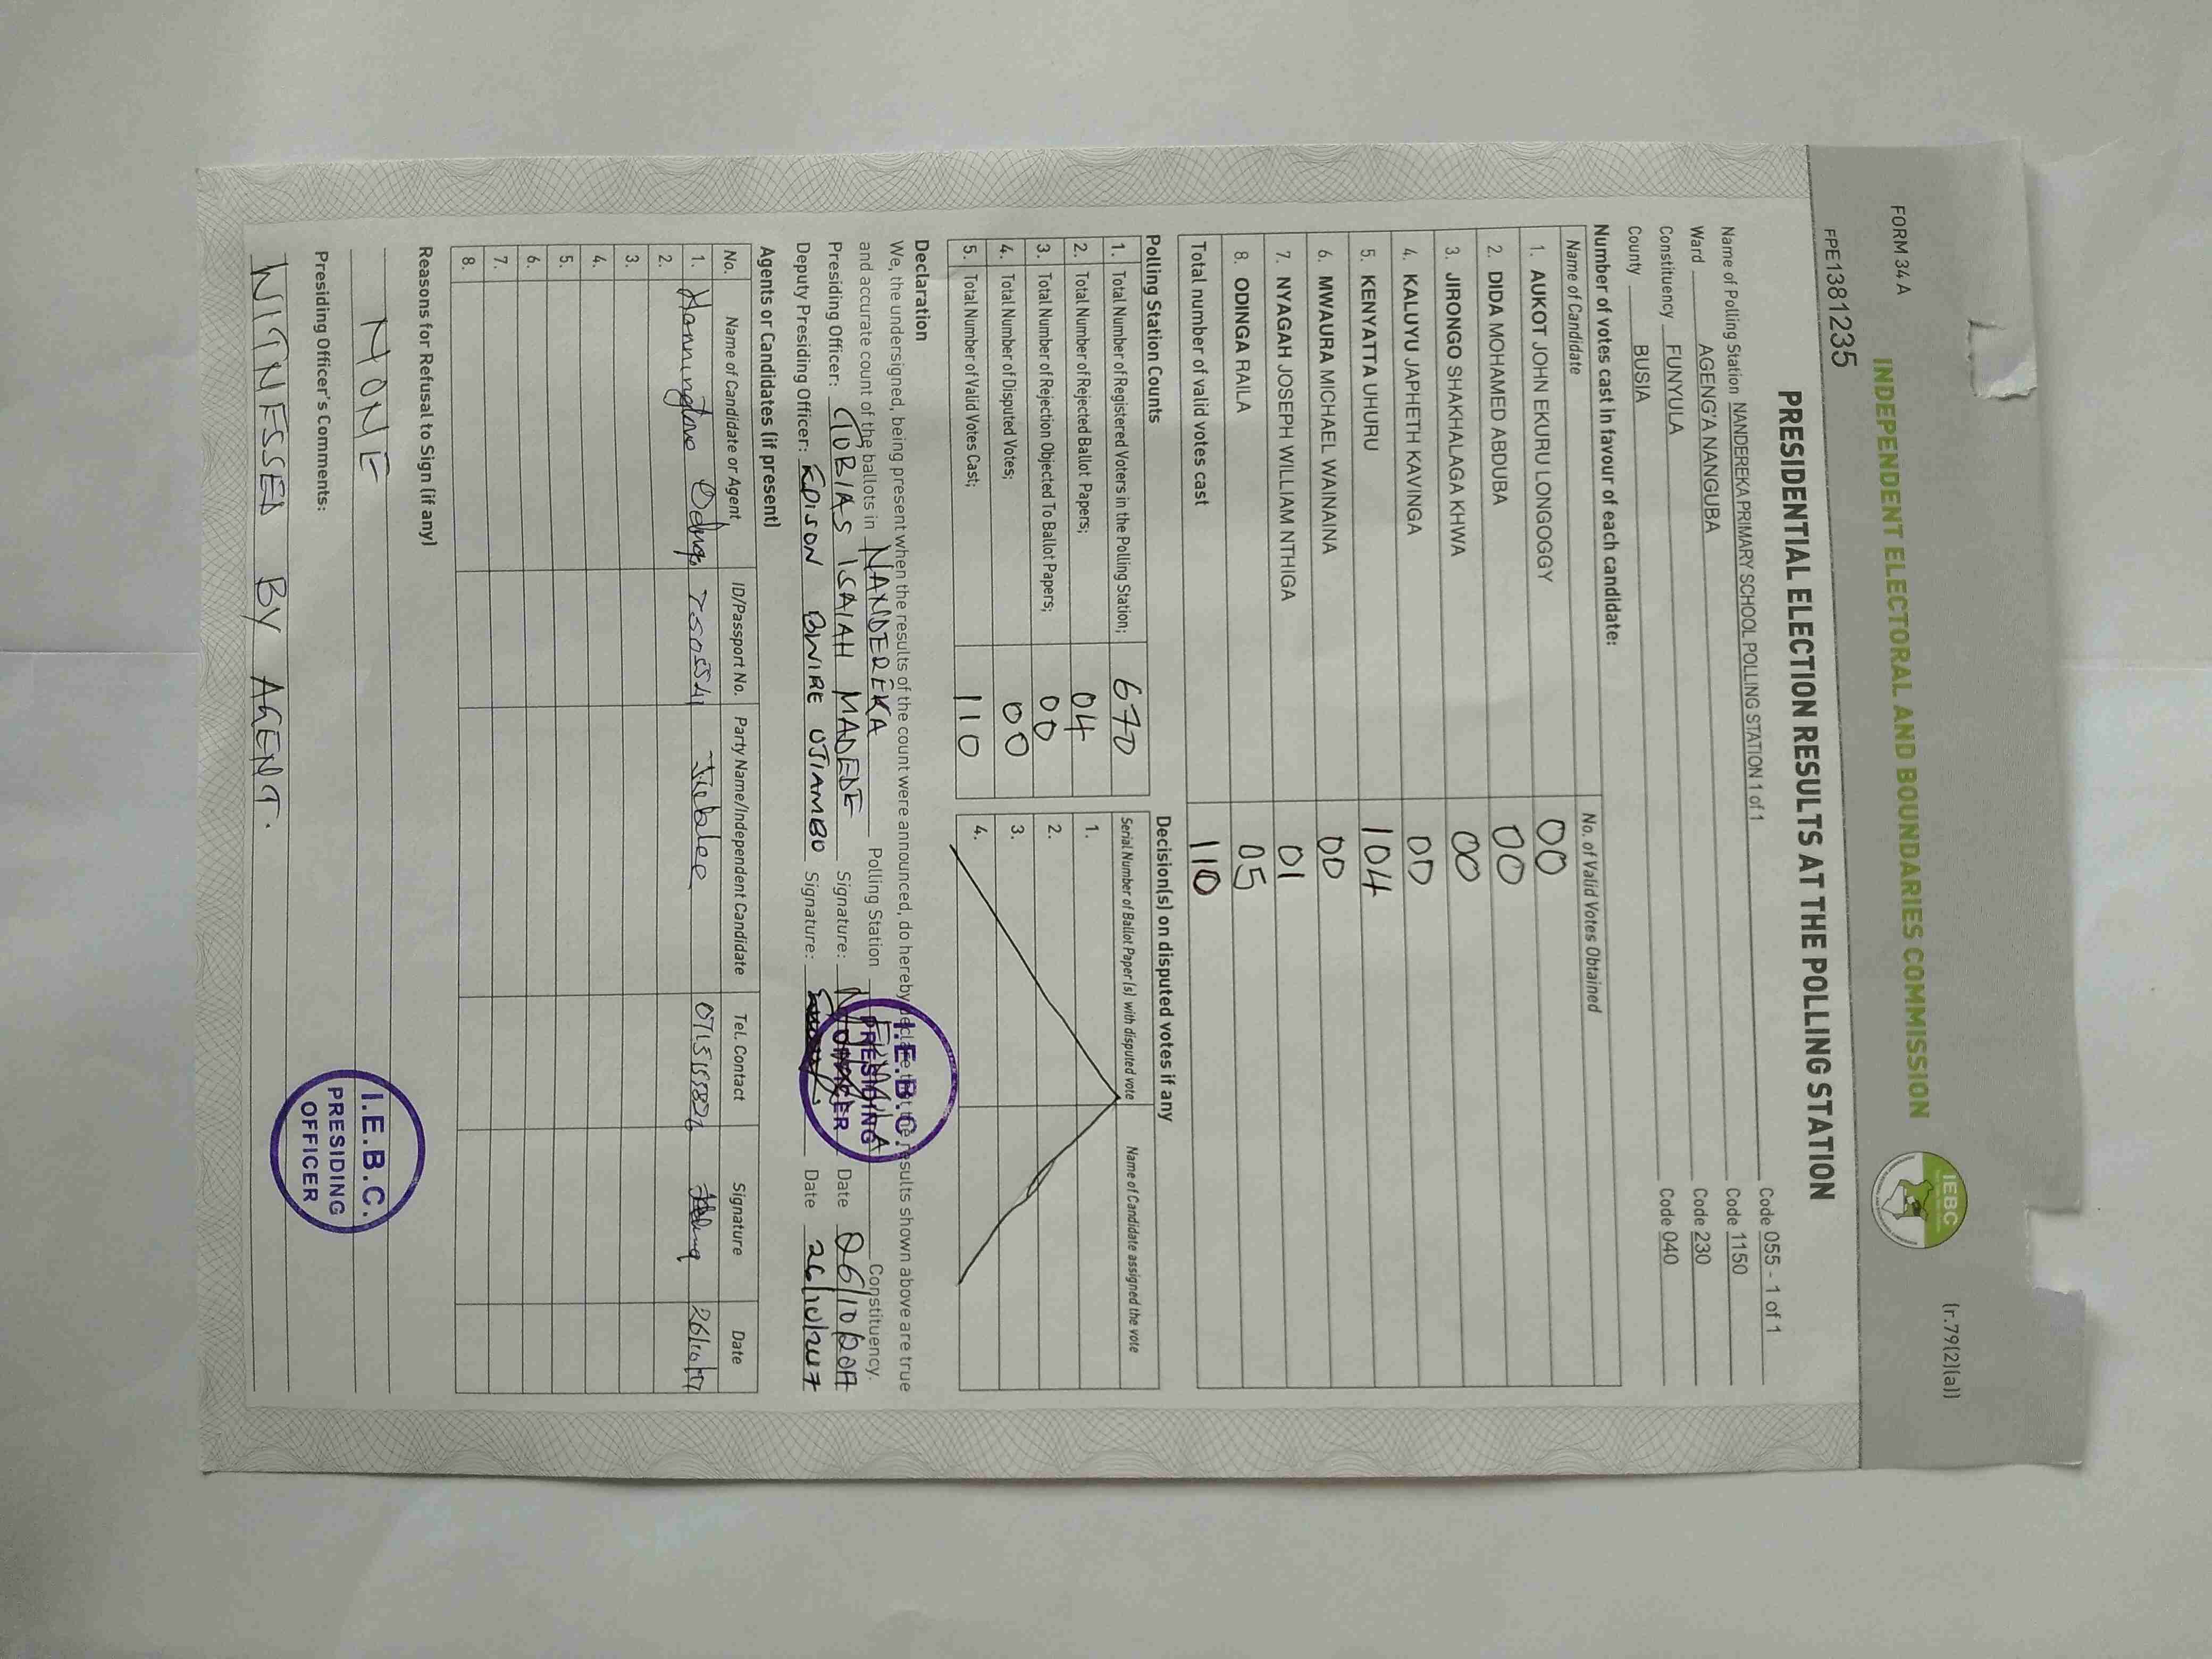 FORM 34 A
(r.79(2)(a))
INDEPENDENT ELECTORAL AND BOUNDARIES COMMISSION
IEBC
FPE1381235
PRESIDENTIAL ELECTION RESULTS AT THE POLLING STATION
Name of Polling Station NANDEREKA PRIMARY SCHOOL POLLING STATION 1 of 1 Code 055 - 1 of 1
Ward AGENG'A NANGUBA Code 1150
Constituency FUNYULA Code 230
County BUSIA Code 040
Number of votes cast in favour of each candidate:
Name of Candidate No. of Valid Votes Obtained
1. AUKOT JOHN EKURU LONGOGGY 00
2. DIDA MOHAMED ABDUBA 00
3. JIRONGO SHAKHALAGA KHWA 00
4. KALUYU JAPHETH KAVINGA 00
5. KENYATTA UHURU 104
6. MWAURA MICHAEL WAINAINA 00
7. NYAGAH JOSEPH WILLIAM NTHIGA 01
8. ODINGA RAILA 05
Total number of valid votes cast 110
Polling Station Counts
1. Total Number of Registered Voters in the Polling Station; 670
2. Total Number of Rejected Ballot Papers; 04
3. Total Number of Rejection Objected To Ballot Papers; 00
4. Total Number of Disputed Votes; 00
5. Total Number of Valid Votes Cast; 110
Decision(s) on disputed votes if any
Serial Number of Ballot Paper (s) with disputed vote Name of Candidate assigned the vote
1.
2.
3.
4.
Declaration
We, the undersigned, being present when the results of the count were announced, do hereby declare that the results shown above are true
and accurate count of the ballots in NANDEREKA Polling Station Constituency.
Presiding Officer: TOBIAS ISAIAH MADEDE Signature: Date 26/10/2017
Deputy Presiding Officer: EDISON BWIRE OJIAMBO Signature: Date 26/10/2017
I.E.B.C.
PRESIDING
OFFICER
Agents or Candidates (if present)
No. Name of Candidate or Agent ID/Passport No. Party Name/Independent Candidate Tel. Contact Signature Date
1. Hannington Jubilee 26/10/17
2.
3.
4.
5.
6.
7.
8.
Reasons for Refusal to Sign (if any)
NONE
Presiding Officer's Comments:
WITNESSED BY AGENT.
I.E.B.C.
PRESIDING
OFFICER